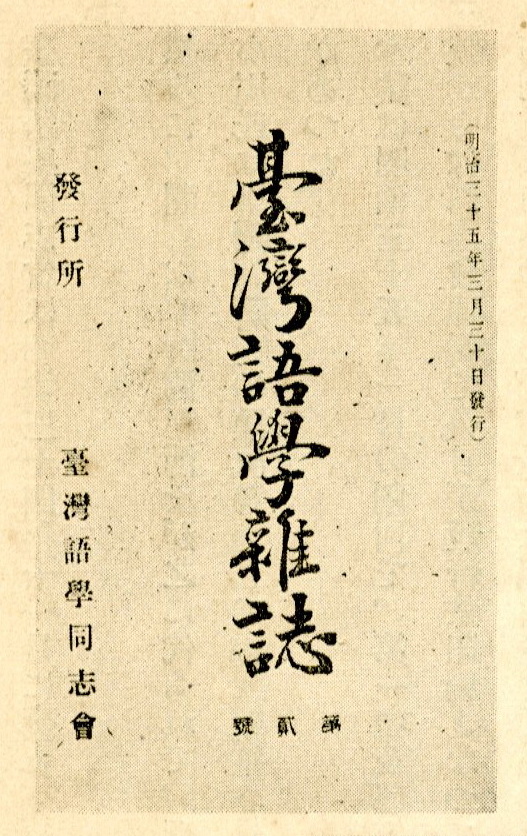 (明治三十五年三月三十日發行)
臺灣語學雜誌
第貳號
發行所 臺灣語學同志會